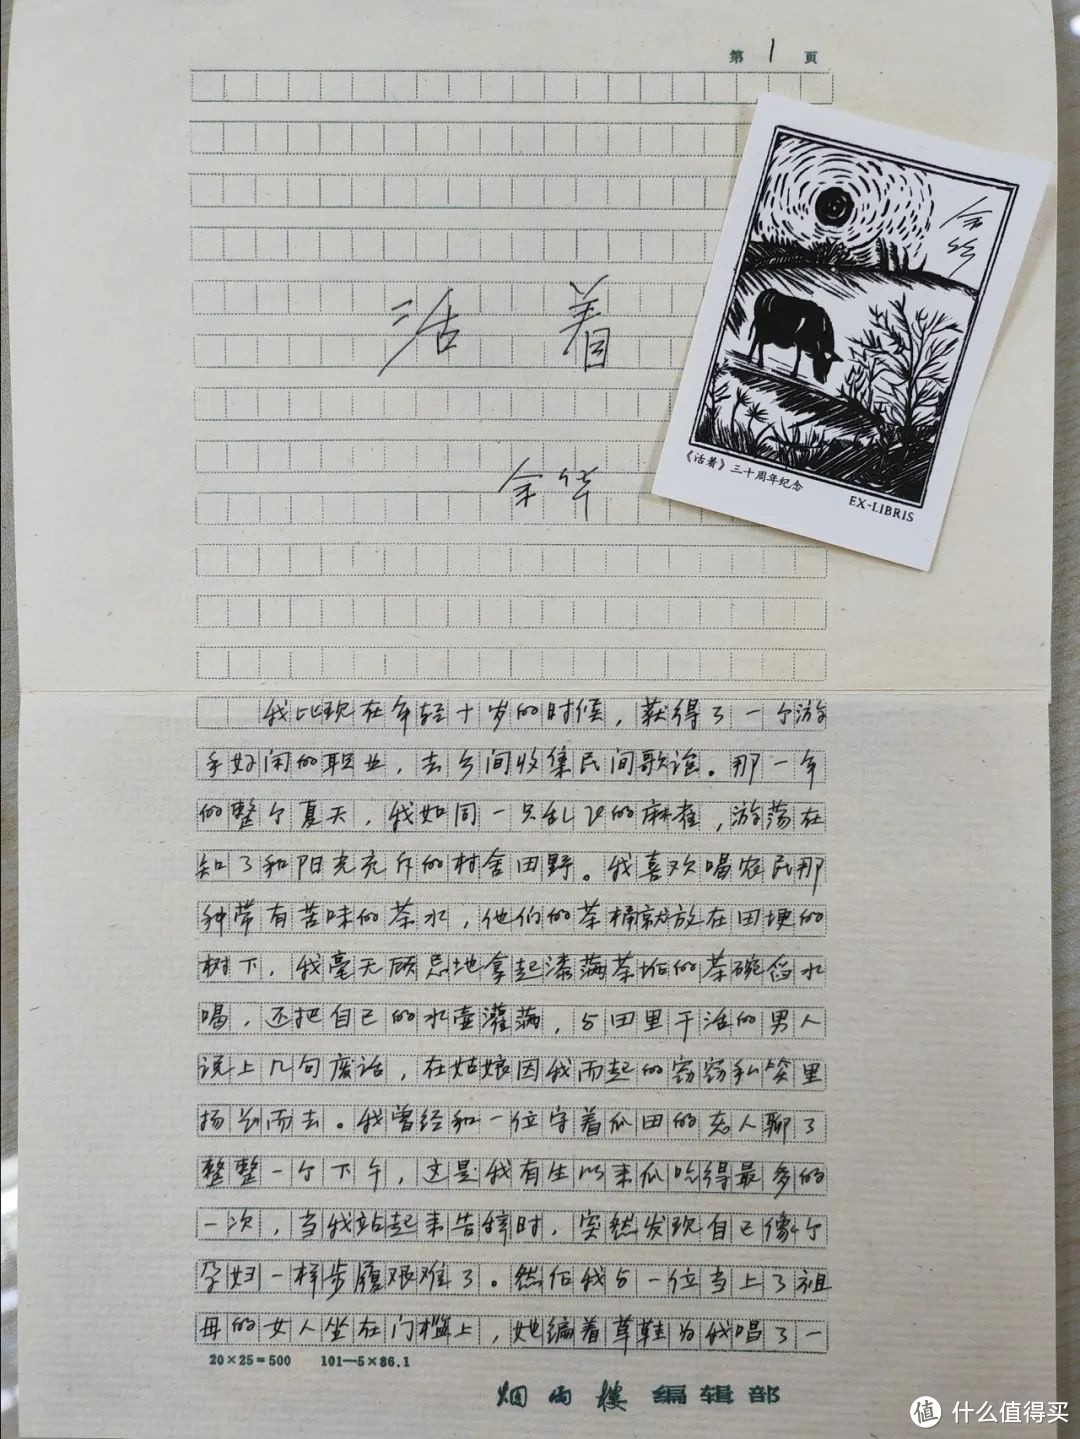 第 1 页
活 着
余华
余华
《活着》三十周年纪念
EX-LIBRIS
我比现在年轻十岁的时候，获得了一个游
手好闲的职业，去乡间收集民间歌谣。那一年
的整个夏天，我如同一只乱飞的麻雀，游荡在
知了和阳光充斥的村舍田野。我喜欢喝农民那
种带有苦味的茶水，他们的茶桶就放在田埂的
树下，我毫无顾忌地拿起漆满茶垢的茶碗舀水
喝，还把自己的水壶灌满，与田里干活的男人
说上几句废话，在姑娘因我而起的窃窃私笑里
扬长而去。我曾经和一位守着瓜田的老人聊了
整整一个下午，这是我有生以来瓜吃得最多的
一次，当我站起来告辞时，突然发现自己像个
孕妇一样步履艰难了。然后我与一位当上了祖
母的女人坐在门槛上，她编着草鞋为我唱了一
20×25=500 101—5×86.1
烟雨楼 编辑部
值 什么值得买